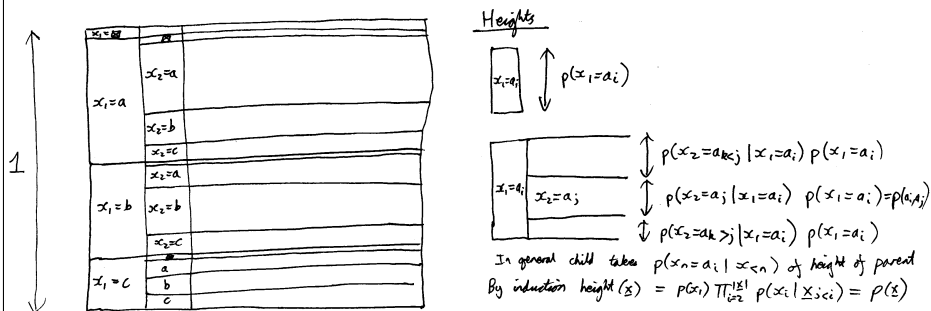 1
x₁=⊠
x₁=a
x₂=a
x₂=b
x₂=c
x₁=b
x₂=a
x₂=b
x₂=c
x₁=c
a
b
c
Heights
x₁=aᵢ
p(x₁=aᵢ)
x₁=aᵢ
x₂=aⱼ
p(x₂=a_{k<j} | x₁=aᵢ) p(x₁=aᵢ)
p(x₂=aⱼ | x₁=aᵢ) p(x₁=aᵢ)=p(aᵢaⱼ)
p(x₂=a_{k>j} | x₁=aᵢ) p(x₁=aᵢ)
In general child takes p(xₙ=aᵢ | x_{<n}) of height of parent
By induction height(x) = p(x₁) ∏_{i=2}^{|x|} p(xᵢ | x_{j<i}) = p(x)